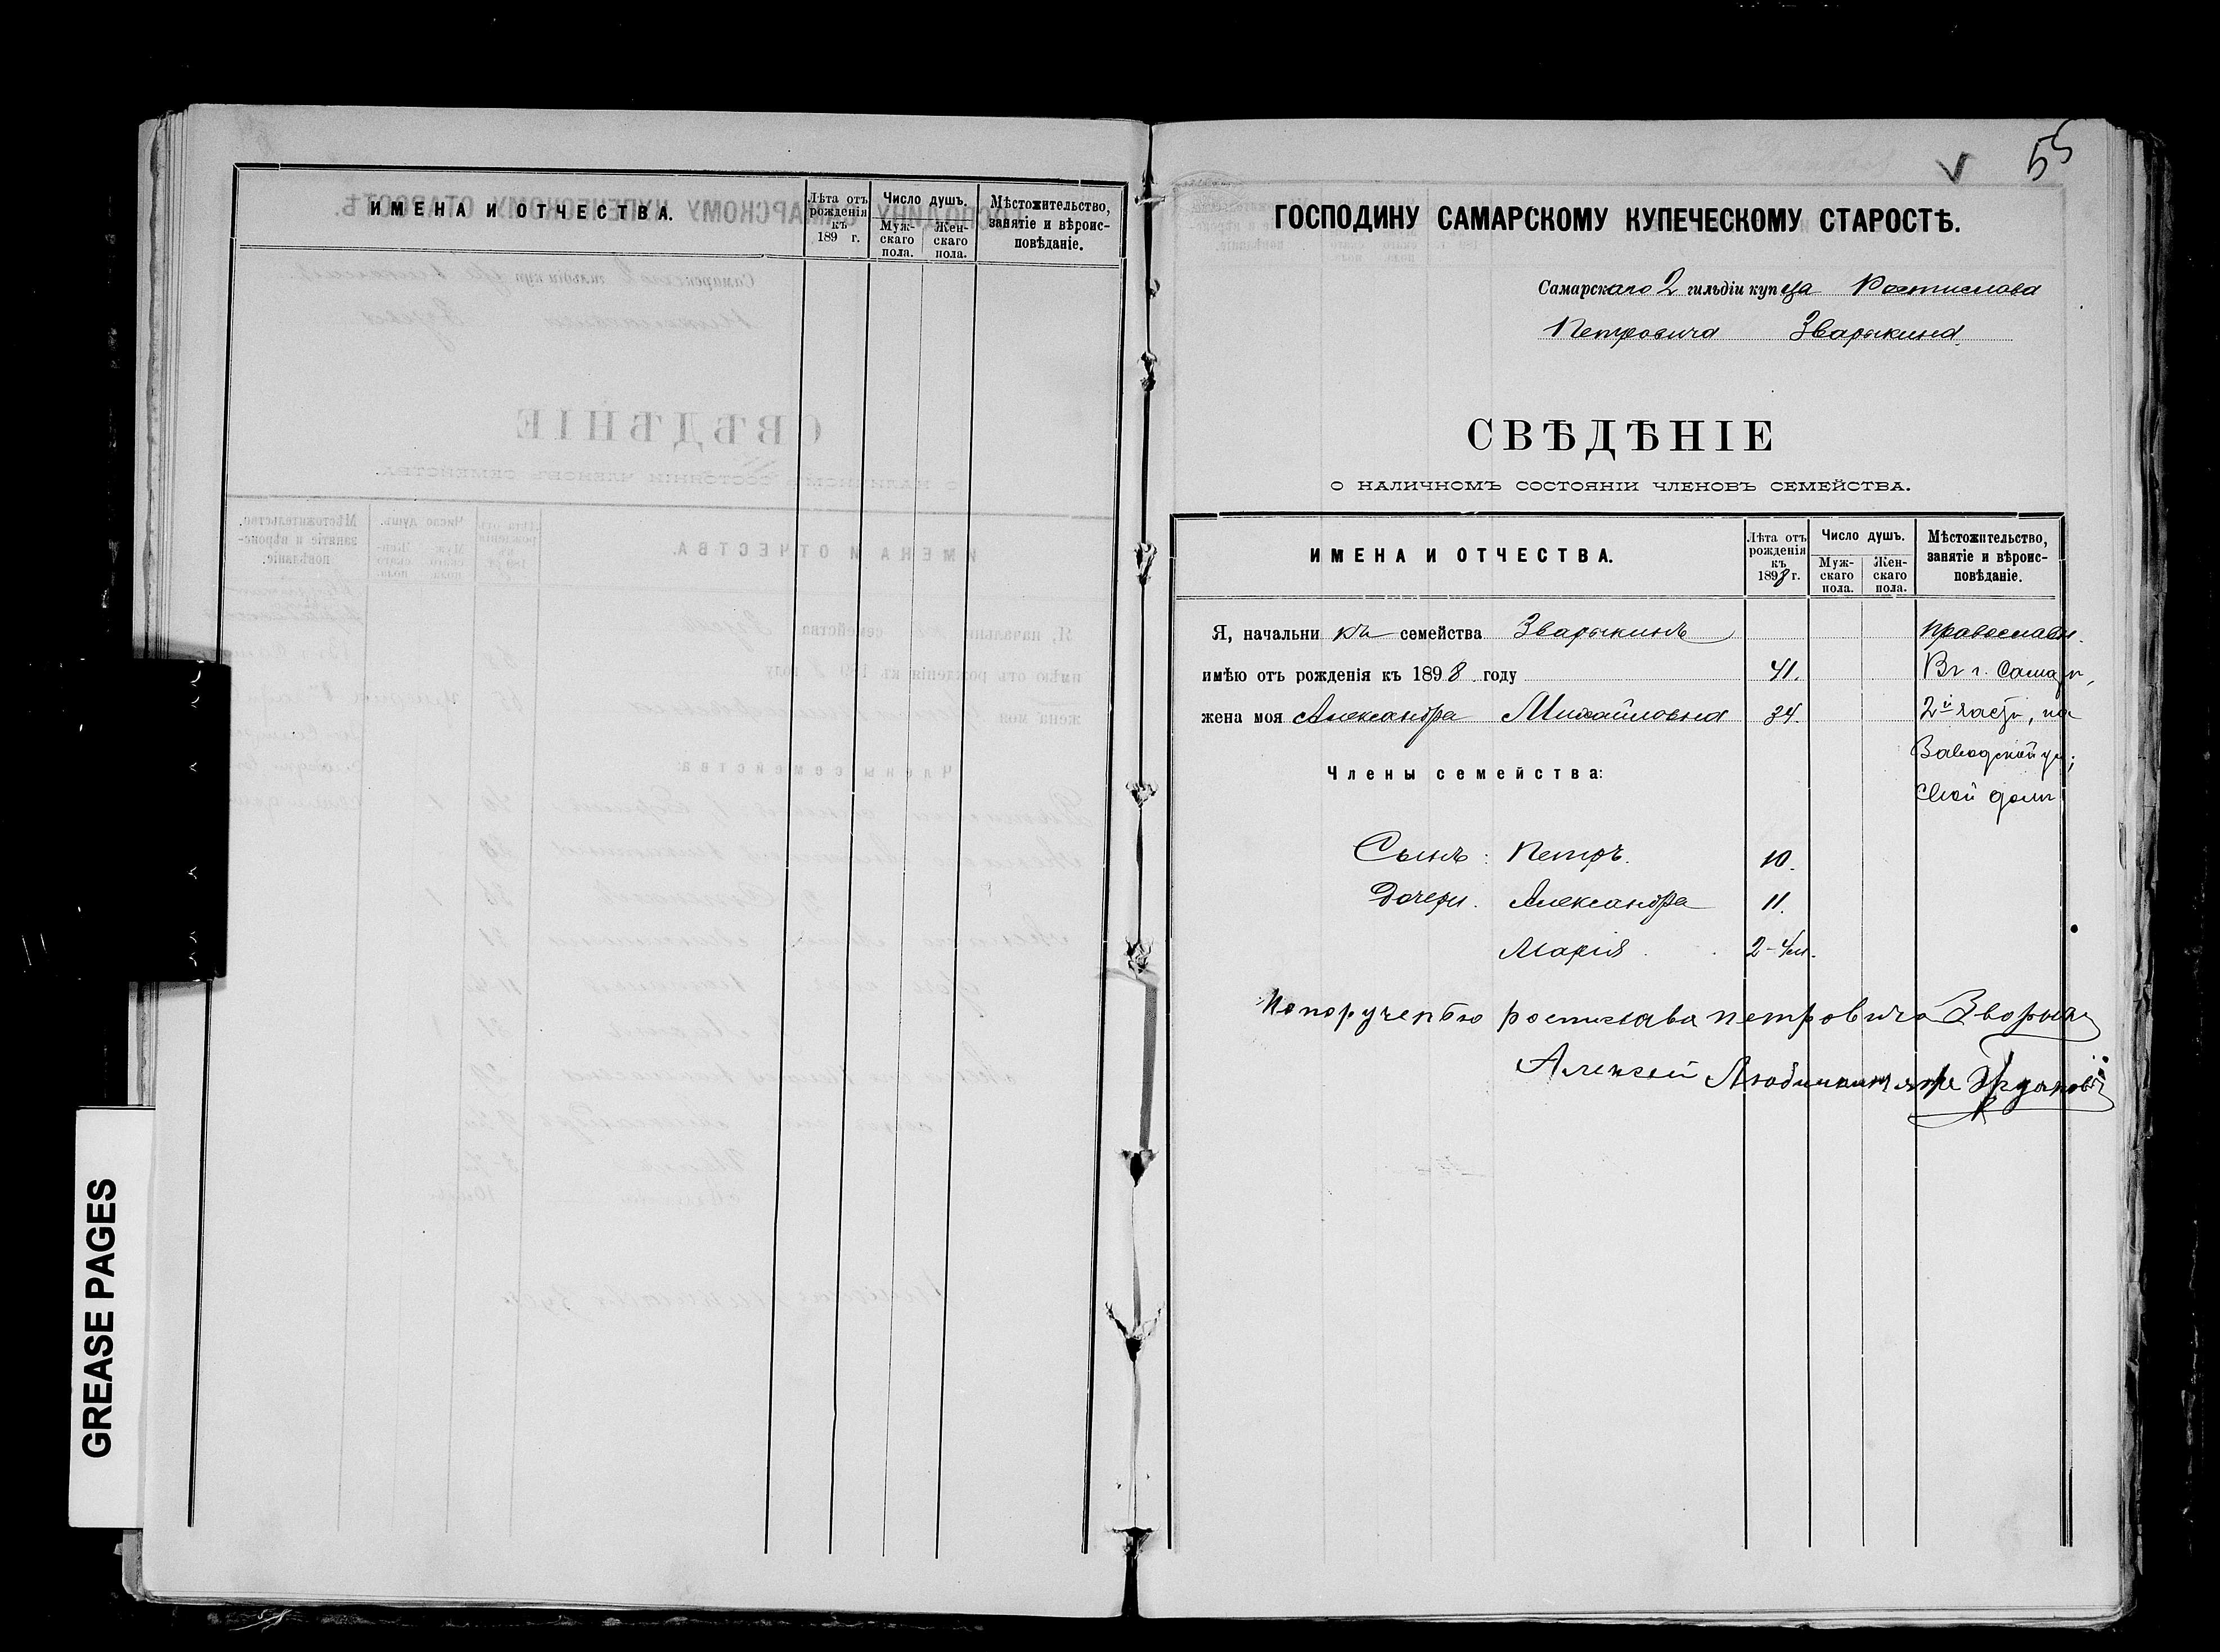 ИМЕНА И ОТЧЕСТВА.
Лѣта отъ рожденія къ 189 г.
Число душъ.
Муж-скаго пола.
Жен-скаго пола.
Мѣстожительство, занятіе и вѣроис-повѣданіе.
GREASE PAGES
55
ГОСПОДИНУ САМАРСКОМУ КУПЕЧЕСКОМУ СТАРОСТѢ.
Самарскаго 2 гильдіи купца Ростислава
Петровича Зварыкина
СВѢДѢНІЕ
О НАЛИЧНОМЪ СОСТОЯНІИ ЧЛЕНОВЪ СЕМЕЙСТВА.
ИМЕНА И ОТЧЕСТВА.
Лѣта отъ рожденія къ 1898 г.
Число душъ.
Муж-скаго пола.
Жен-скаго пола.
Мѣстожительство, занятіе и вѣроис-повѣданіе.
Я, начальникъ семейства Зварыкинъ православн.
имѣю отъ рожденія къ 1898 году 41. Въ г. Самарѣ,
жена моя Александра Михайловна 34. 2й части, на
Заводской ул;
Члены семейства:
Свой домъ
Сынъ: Петръ. 10.
Дочери. Александра 11.
Марія. 2
Ростислава Петровича
Алексей